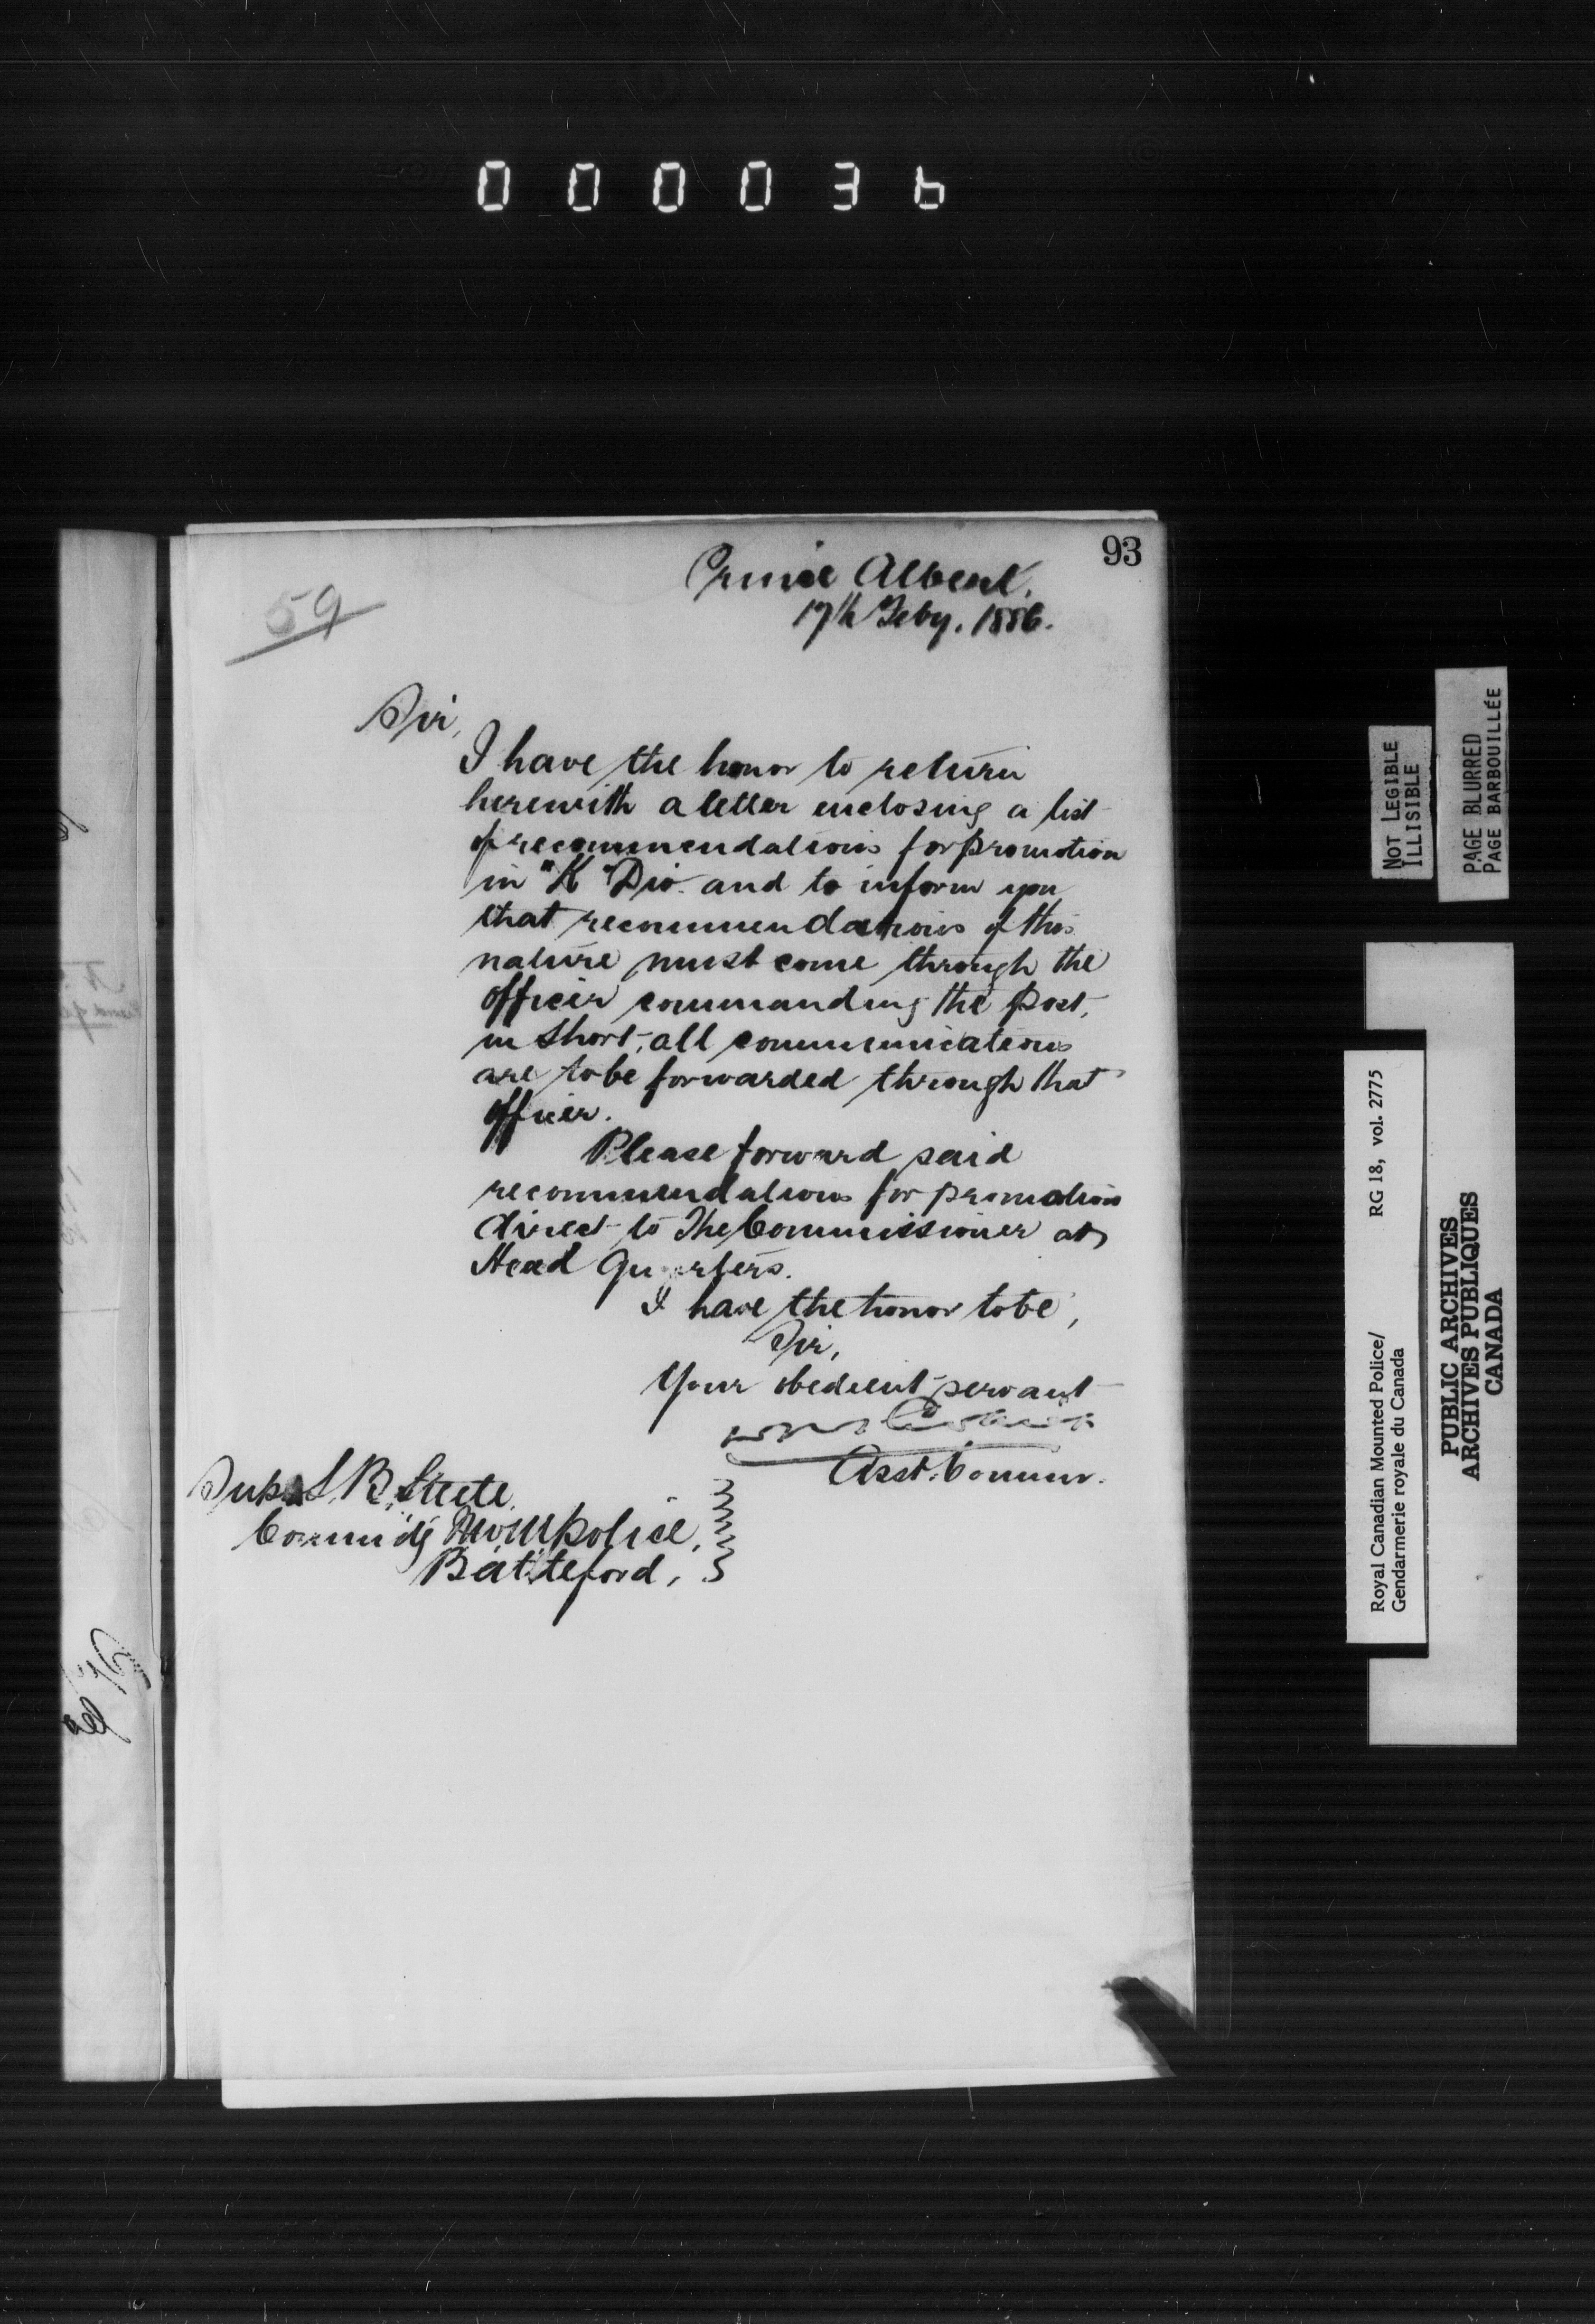 000036
93
59
Prince Albert.
17th Feby. 1886.
Sir,
I have the honor to return
herewith a letter enclosing a list
of recommendations for promotion
in "K" Div. and to inform you
that recommendations of this
nature must come through the
officer commanding the post,
in short, all communications
are to be forwarded through that
officer.
Please forward said
recommendations for promotion
direct to The Commissioner at
Head Quarters.
I have the honor to be,
Sir,
Your obedient servant
Asst. Commr.
Supt. S. B. Steele
Commdg Police,
Battleford,
NOT LEGIBLE
ILLISIBLE
PAGE BLURRED
PAGE BARBOUILLÉE
Royal Canadian Mounted Police/ RG 18, vol. 2775
Gendarmerie royale du Canada
PUBLIC ARCHIVES
ARCHIVES PUBLIQUES
CANADA